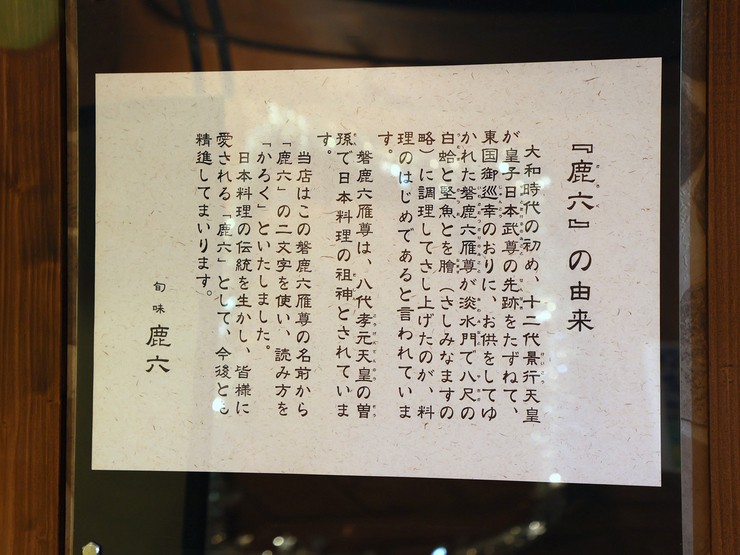 『鹿六』の由来
大和時代の初め、十二代景行天皇
が皇子日本武尊の先跡をたずねて、
東国御巡幸のおりに、お供をしてゆ
かれた磐鹿六雁尊が淡水門で八尺の
白蛤と堅魚とを膾（さしみなますの
略）に調理してさし上げたのが、料
理のはじめであると言われていま
す。
磐鹿六雁尊は、八代孝元天皇の曽
孫で日本料理の祖神とされていま
す。
当店はこの磐鹿六雁尊の名前から
「鹿六」の二文字を使い、読み方を
「かろく」といたしました。
日本料理の伝統を生かし、皆様に
愛される「鹿六」として、今後とも
精進してまいります。
旬味 鹿六